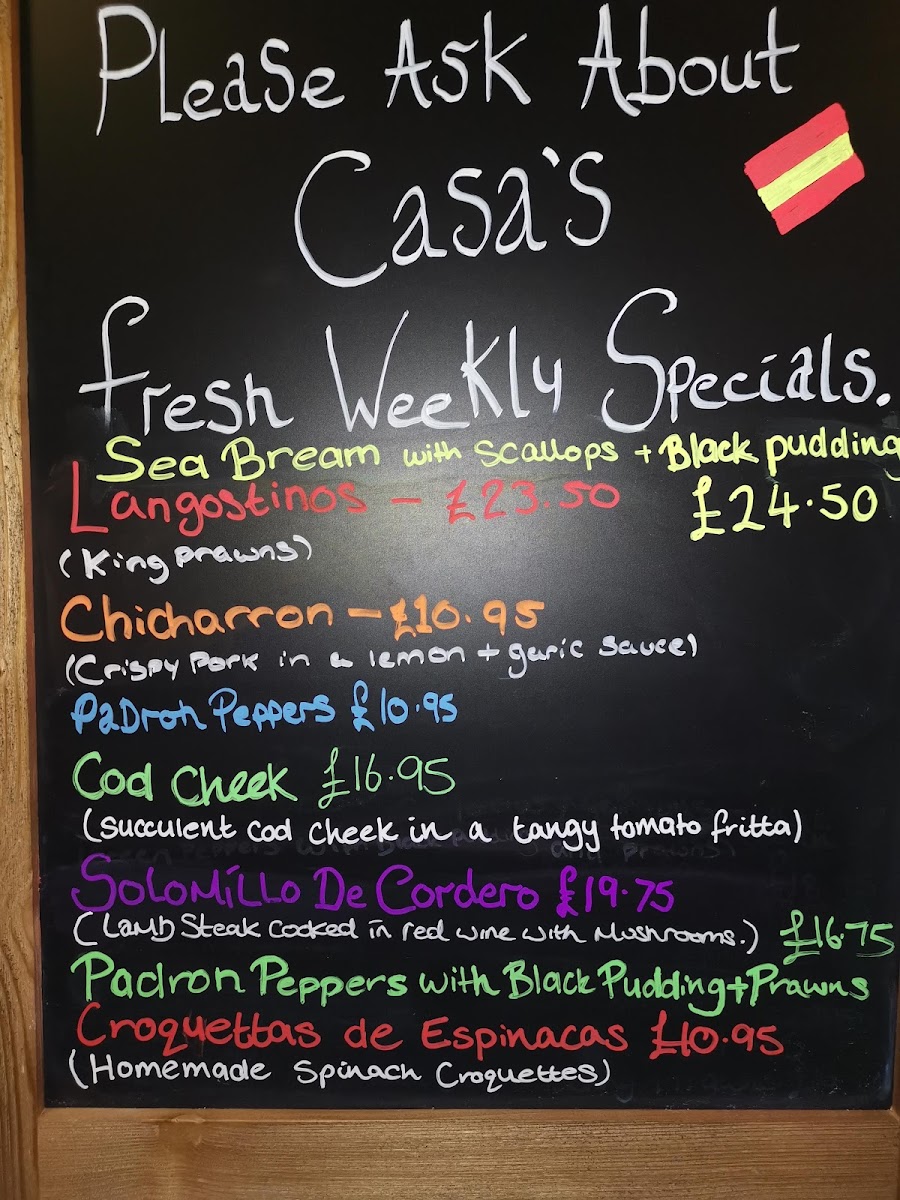 Please Ask About
Casa's
Fresh Weekly Specials.
Sea Bream with Scallops + Black pudding
£24.50
Langostinos - £23.50
(King prawns)
Chicharron - £10.95
(Crispy Pork in a lemon + garic sauce)
Padron Peppers £10.95
Cod Cheek £16.95
(Succulent Cod Cheek in a tangy tomato fritta)
Solomillo De Cordero £19.75
(Lamb Steak Cooked in red wine with Mushrooms.)
£16.75
Padron Peppers with Black Pudding + Prawns
Croquettas de Espinacas £10.95
(Homemade Spinach Croquettes)